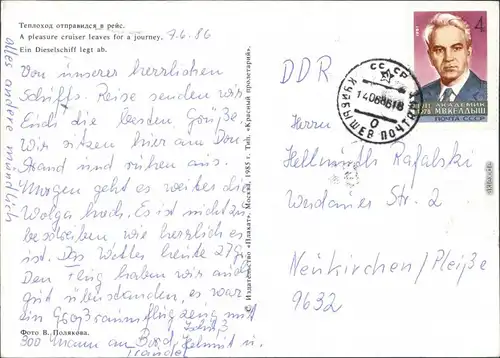 Теплоход отправился в рейс.
A pleasure cruiser leaves for a journey.
Ein Dieselschiff legt ab.
7.6.86
Von unserer herrlichen
Schiffs Reise senden wir
Euch die besten Grüße.
Wir sitzen hier am Don
Strand und ruhen aus.
Morgen geht es weiter die
Wolga hoch. Es ist nicht zu
beschreiben wie herrlich es
ist. Das Wetter heute 27g.
Den Flug haben wir auch
gut überstanden, es war
ein Großraumflugzeug mit
300 Mann an Bord.
Helmut u.
alles andere mündlich
Фото В. Полякова.
© Издательство «Плакат». Москва, 1985 г. Тип. «Красный пролетарий».
4
АКАДЕМИК
М.В.КЕЛДЫШ
ПОЧТА СССР
СССР
КУЙБЫШЕВ ПОЧТАМТ
DDR
Herrn
Hellmuth Rafalski
Werdauer Str. 2
Neukirchen/Pleiße
9632